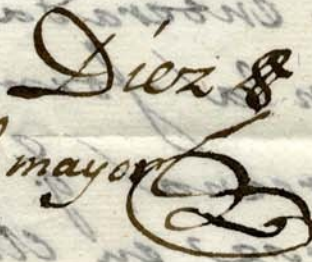 Díez
mayor